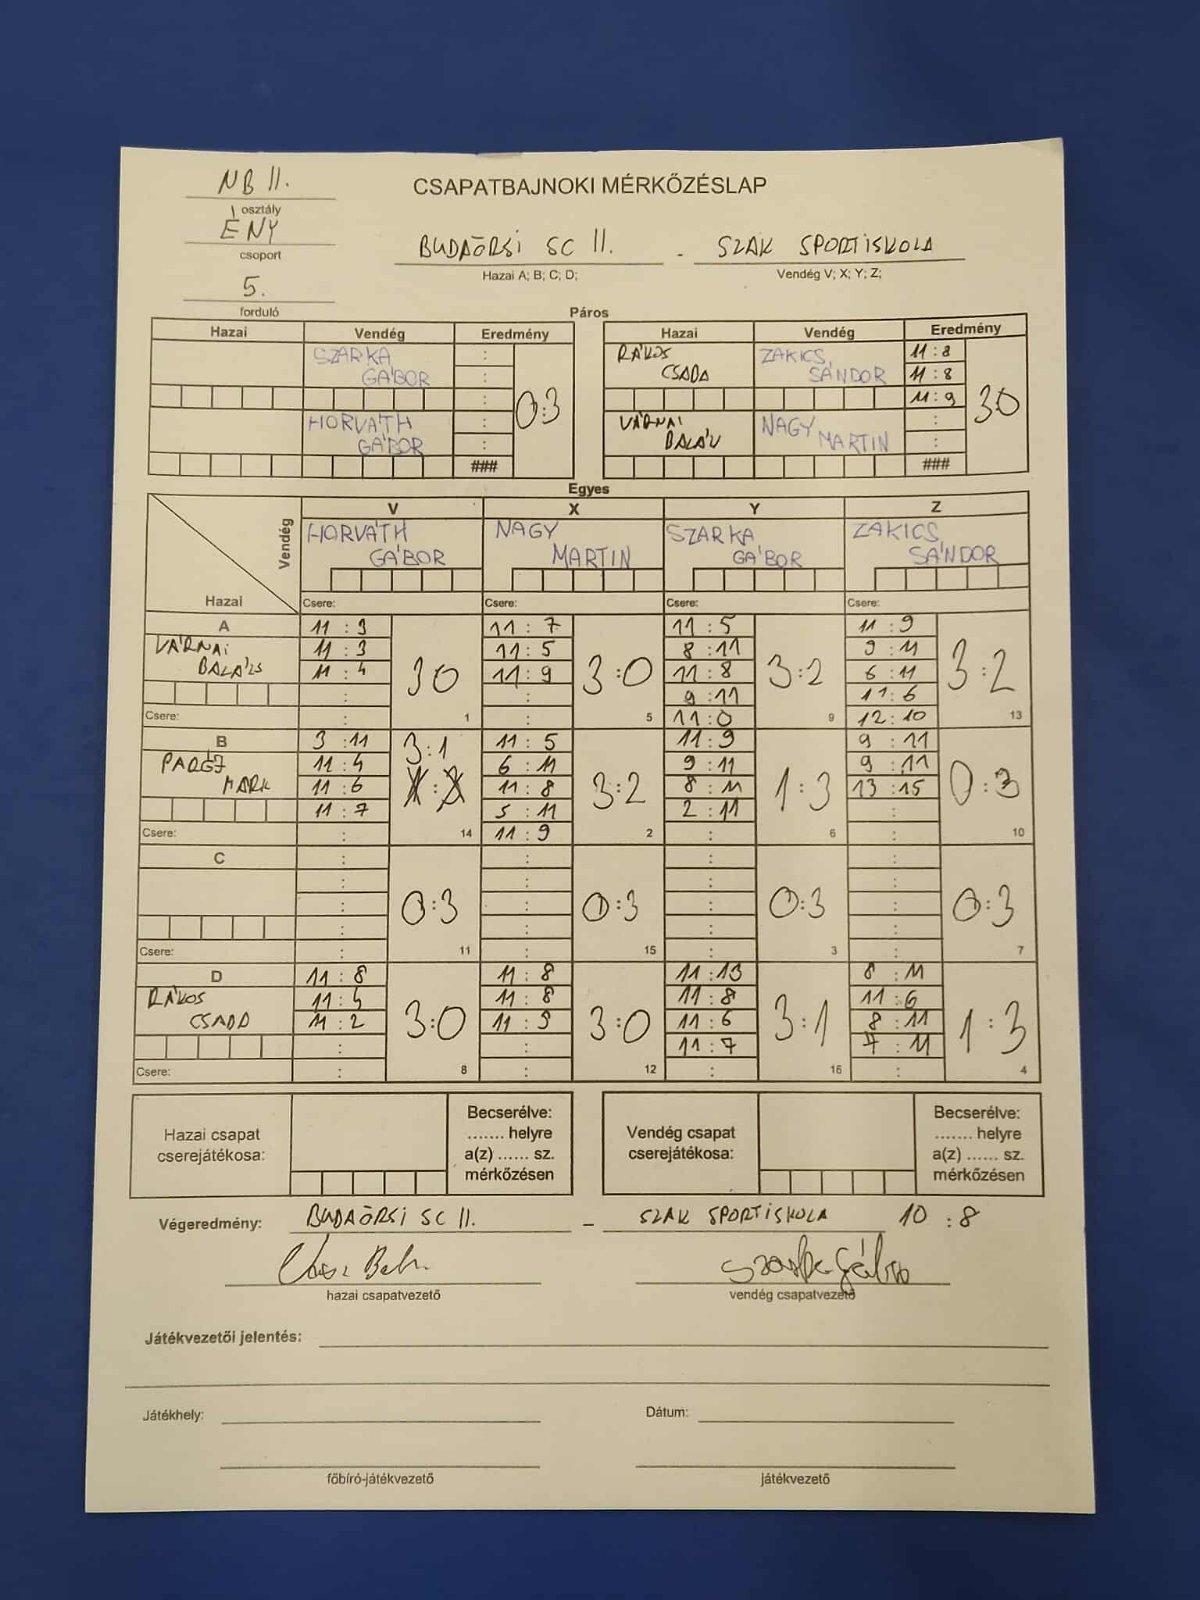 NB II.
osztály
CSAPATBAJNOKI MÉRKŐZÉSLAP
ÉNY
csoport
BUDAÖRSI SC II. - SZAK SPORTISKOLA
Hazai A; B; C; D; Vendég V; X; Y; Z;
5.
forduló
Páros
Hazai Vendég Eredmény Hazai Vendég Eredmény
SZARKA GÁBOR : RÁKOS CSABA ZAKICS SÁNDOR 11:8
: 11:8
: 0:3 11:9 3:0
HORVÁTH GÁBOR : VÁRNAI NAGY MARTIN :
: :
### ###
Egyes
V X Y Z
Vendég
HORVÁTH GÁBOR NAGY MARTIN SZARKA GÁBOR ZAKICS SÁNDOR
Hazai
Csere: Csere: Csere: Csere:
A 11:3 11:7 11:5 11:9
VÁRNAI 11:3 11:5 8:11 9:11
BALÁZS 11:4 3 0 11:9 3:0 11:8 3:2 6:11 3:2
: : 9:11 11:6
Csere: : 1 : 5 11:0 9 12:10 13
B 3:11 3:1 11:5 11:9 9:11
11:4 6:11 9:11 9:11
MARK 11:6 11:8 3:2 8:11 1:3 13:15 0:3
11:7 5:11 2:11 :
Csere: : 14 11:9 2 : 6 : 10
C : : : :
: : : :
: 0:3 : 0:3 : 0:3 : 0:3
: : : :
Csere: : 11 : 15 : 3 : 7
D 11:8 11:8 11:13 8:11
RÁKOS 11:8 11:8 11:6
CSABA 11:2 3:0 3:0 11:6 3:1 8:11 1:3
: : 11:7 7:11
Csere: : 8 : 12 : 16 : 4
Hazai csapat cserejátékosa:
Becserélve:
....... helyre
a(z) ...... sz.
mérkőzésen
Vendég csapat cserejátékosa:
Becserélve:
....... helyre
a(z) ...... sz.
mérkőzésen
Végeredmény: BUDAÖRSI SC II. - SZAK SPORTISKOLA 10 : 8
Szarka Gábor
hazai csapatvezető vendég csapatvezető
Játékvezetői jelentés:
Játékhely: Dátum:
főbíró-játékvezető játékvezető